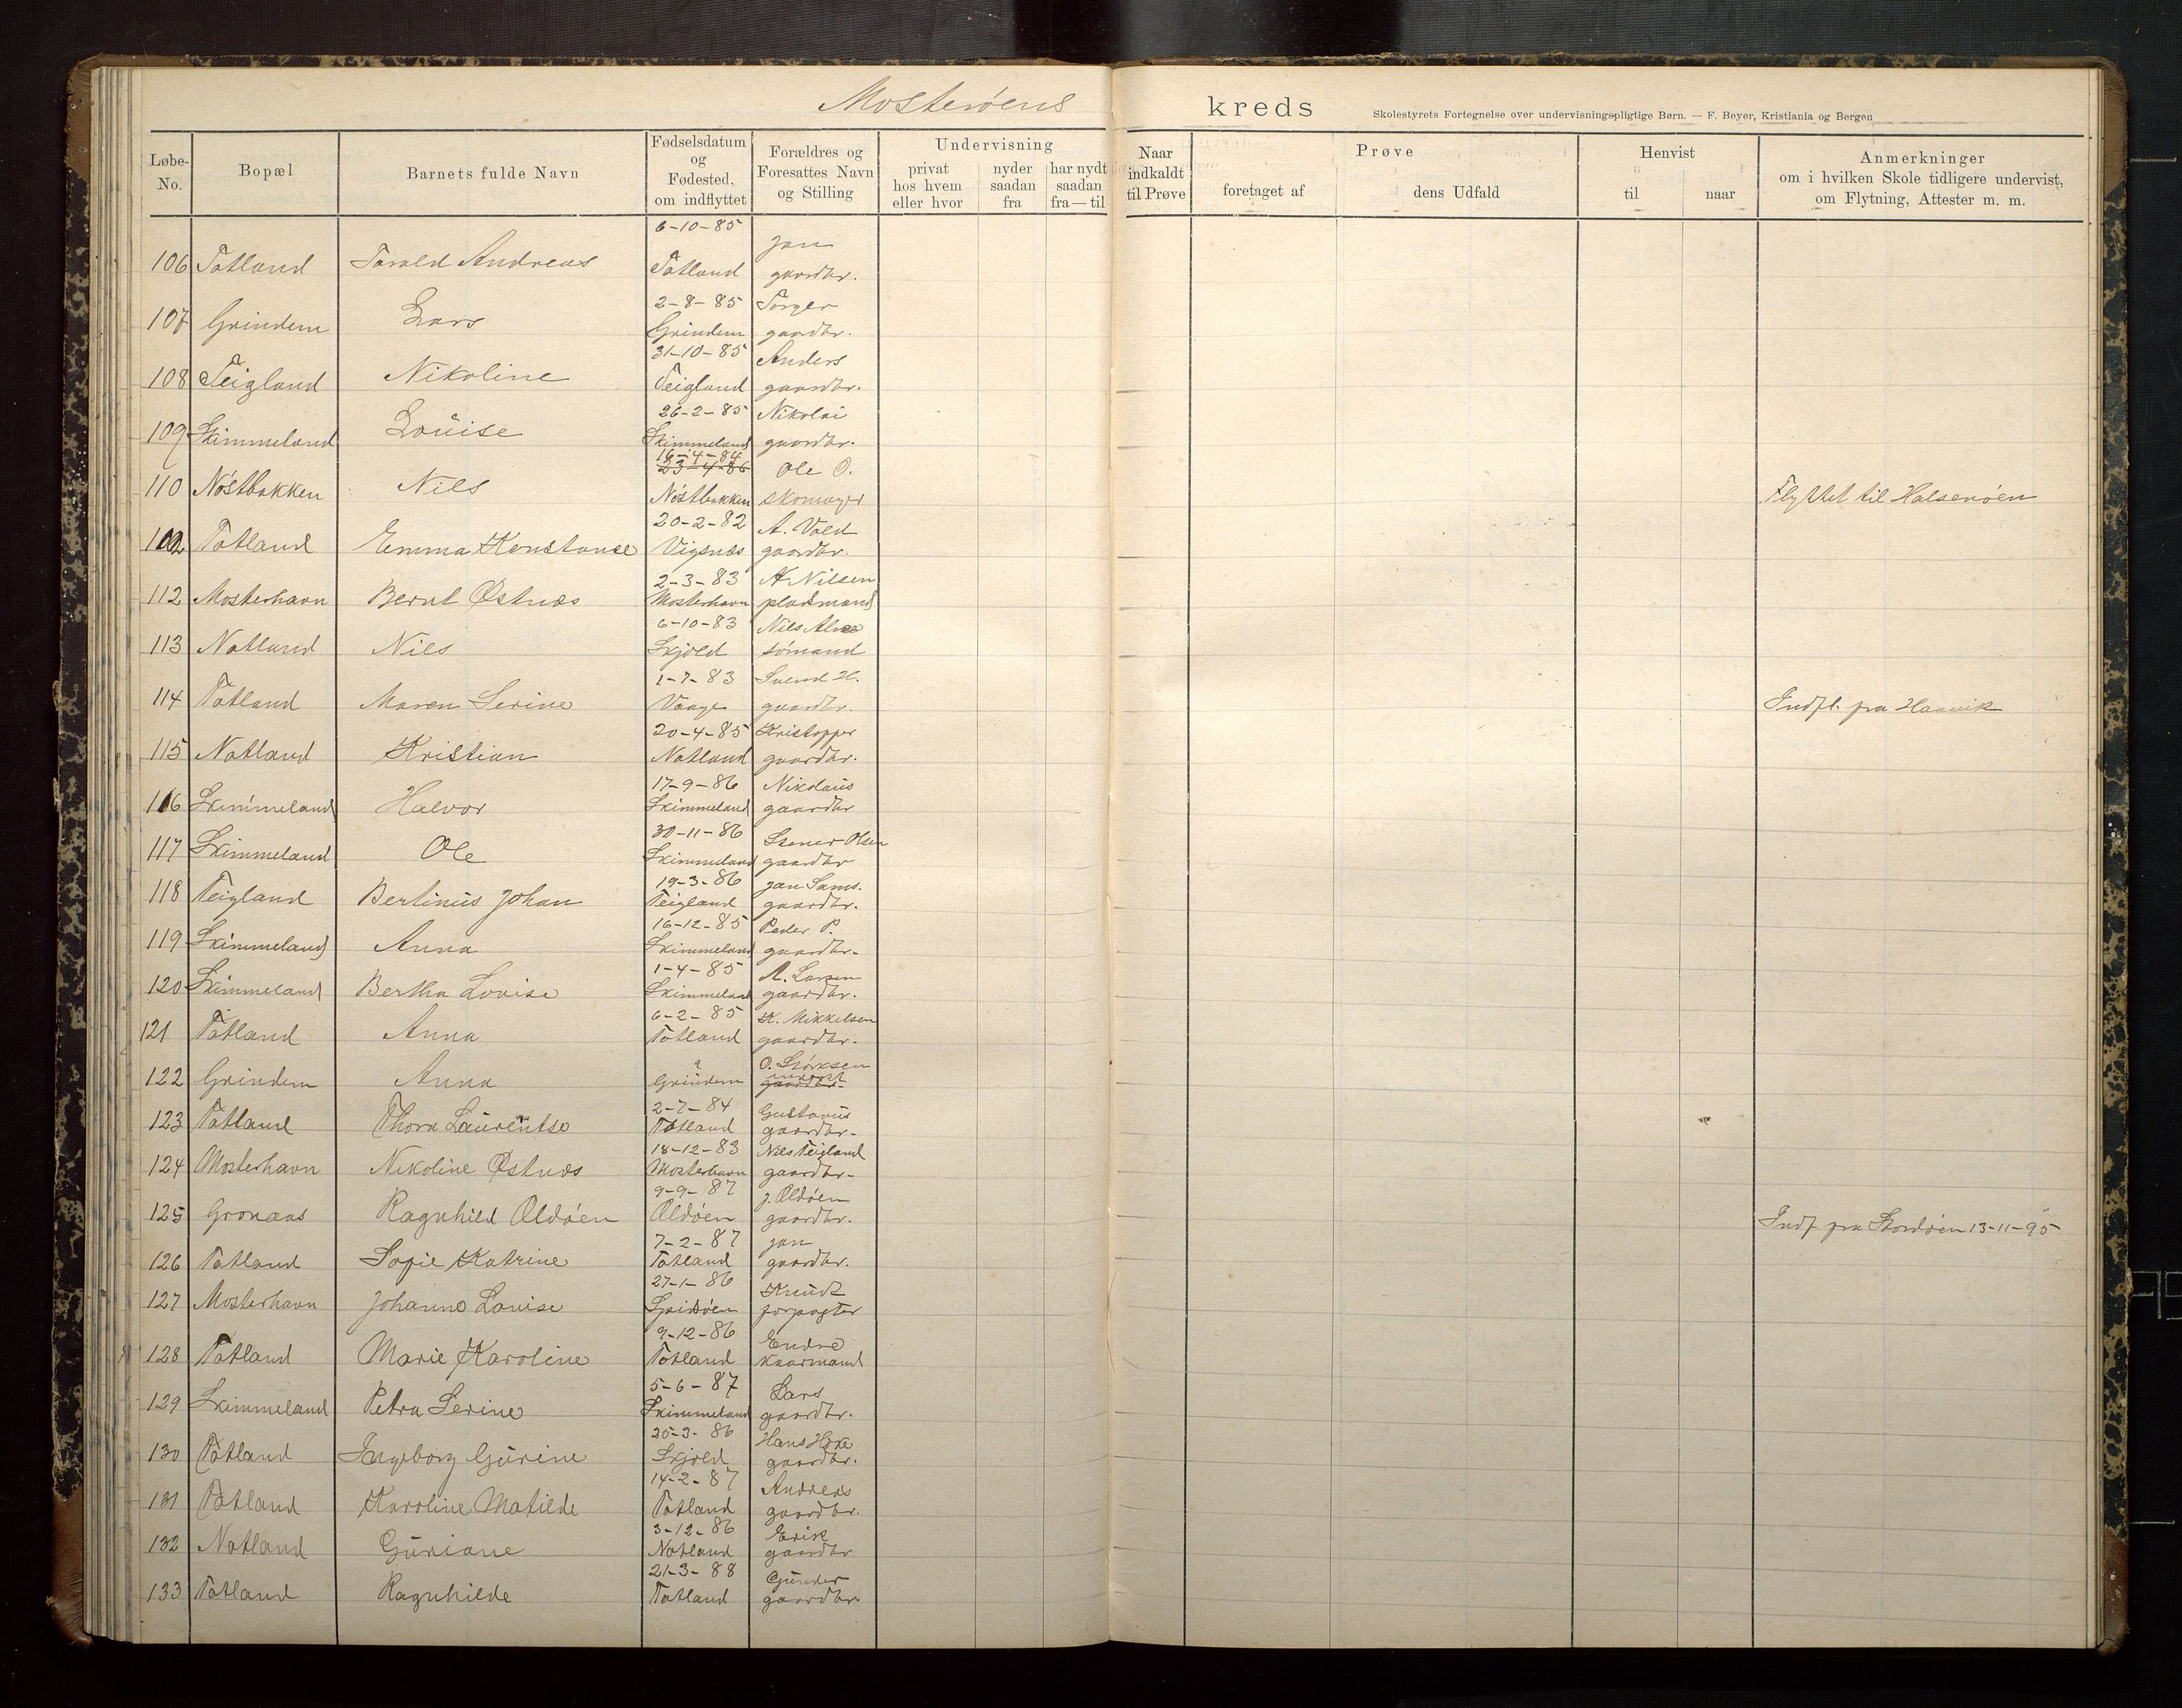 Mosterøens kreds
Skolestyrets Fortegnelse over undervisningspligtige Børn. — F. Beyer, Kristiania og Bergen
Løbe-No. Bopæl Barnets fulde Navn Fødselsdatum og Fødested, om indflyttet Forældres og Foresattes Navn og Stilling Undervisning privat hos hvem eller hvor nyder saadan fra har nydt saadan fra—til Naar indkaldt til Prøve Prøve foretaget af dens Udfald Henvist til naar Anmerkninger om i hvilken Skole tidligere undervist, om Flytning, Attester m. m.
6-10-85 Jan
106 Totland Torald Andreas Totland gaardbr.
2-8-85 Torger
107 Grindem Lars Grindem gaardbr.
31-10-85 Anders
108 Teigland Nikoline Teigland gaardbr.
26-2-85 Nikolai
109 Skimmeland Louise Skimmeland gaardbr.
16-4-84
23-4-86 Ole O.
110 Nøstbakken Nils Nøstbakken skomager Flyttet til Halsenøen
20-2-82 A. Vold
102 Totland Emma Konstanse Vigsnæs gaardbr.
2-3-83 A Nilsen
112 Mosterhavn Bernt Østnæs Mosterhavn pladsmand
6-10-83 Nils
113 Notland Nils Skjold sømand
1-7-83 Svend H.
114 Totland Maren Serine Vaage gaardbr. Indfl. fra Haavik
20-4-85 Kristoffer
115 Notland Kristian Notland gaardbr.
17-9-86 Nikolaus
116 Skimmeland Halvor Skimmeland gaardbr
30-11-86 Olsen
117 Skimmeland Ole Skimmeland gaardbr
19-3-86 Jan Sams.
118 Teigland Bertinius Johan Teigland gaardbr.
16-12-85 Peder P.
119 Skimmeland Anna Skimmeland gaardbr.
1-4-85 A. Larsen
120 Skimmeland Bertha Lovise Skimmeland gaardbr.
6-2-85 K. Mikkelsen
121 Totland Anna Totland gaardbr.
? O. Størksen
122 Grindem Anna Grindem gaardbr.
2-7-84 Gustavus
123 Totland Thora Laurentse Totland gaardbr.
18-12-83 Nils Teigland
124 Mosterhavn Nikoline Østnæs Mosterhavn gaardbr.
9-9-87 J. Oldøen
125 Gronaas Ragnhild Oldøen Oldøen gaardbr. Indf. fra Stordøen 13-11-95
7-2-87 Jan
126 Totland Sofie Katrine Totland gaardbr.
27-1-86 Knudt
127 Mosterhavn Johanne Lovise forpagter
9-12-86 Endre
128 Totland Marie Karoline Totland kaarmand
5-6-87 Lars
129 Skimmeland Petra Serine Skimmeland gaardbr.
25-3-86 Hans
130 Totland Ingeborg Gurine Skjold gaardbr.
14-2-87 Andreas
131 Totland Karoline Matilde Totland gaardbr.
3-12-86 Erik
132 Notland Guriane Notland gaardbr
21-3-88 Gunder
133 Totland Ragnhilde Totland gaardbr.